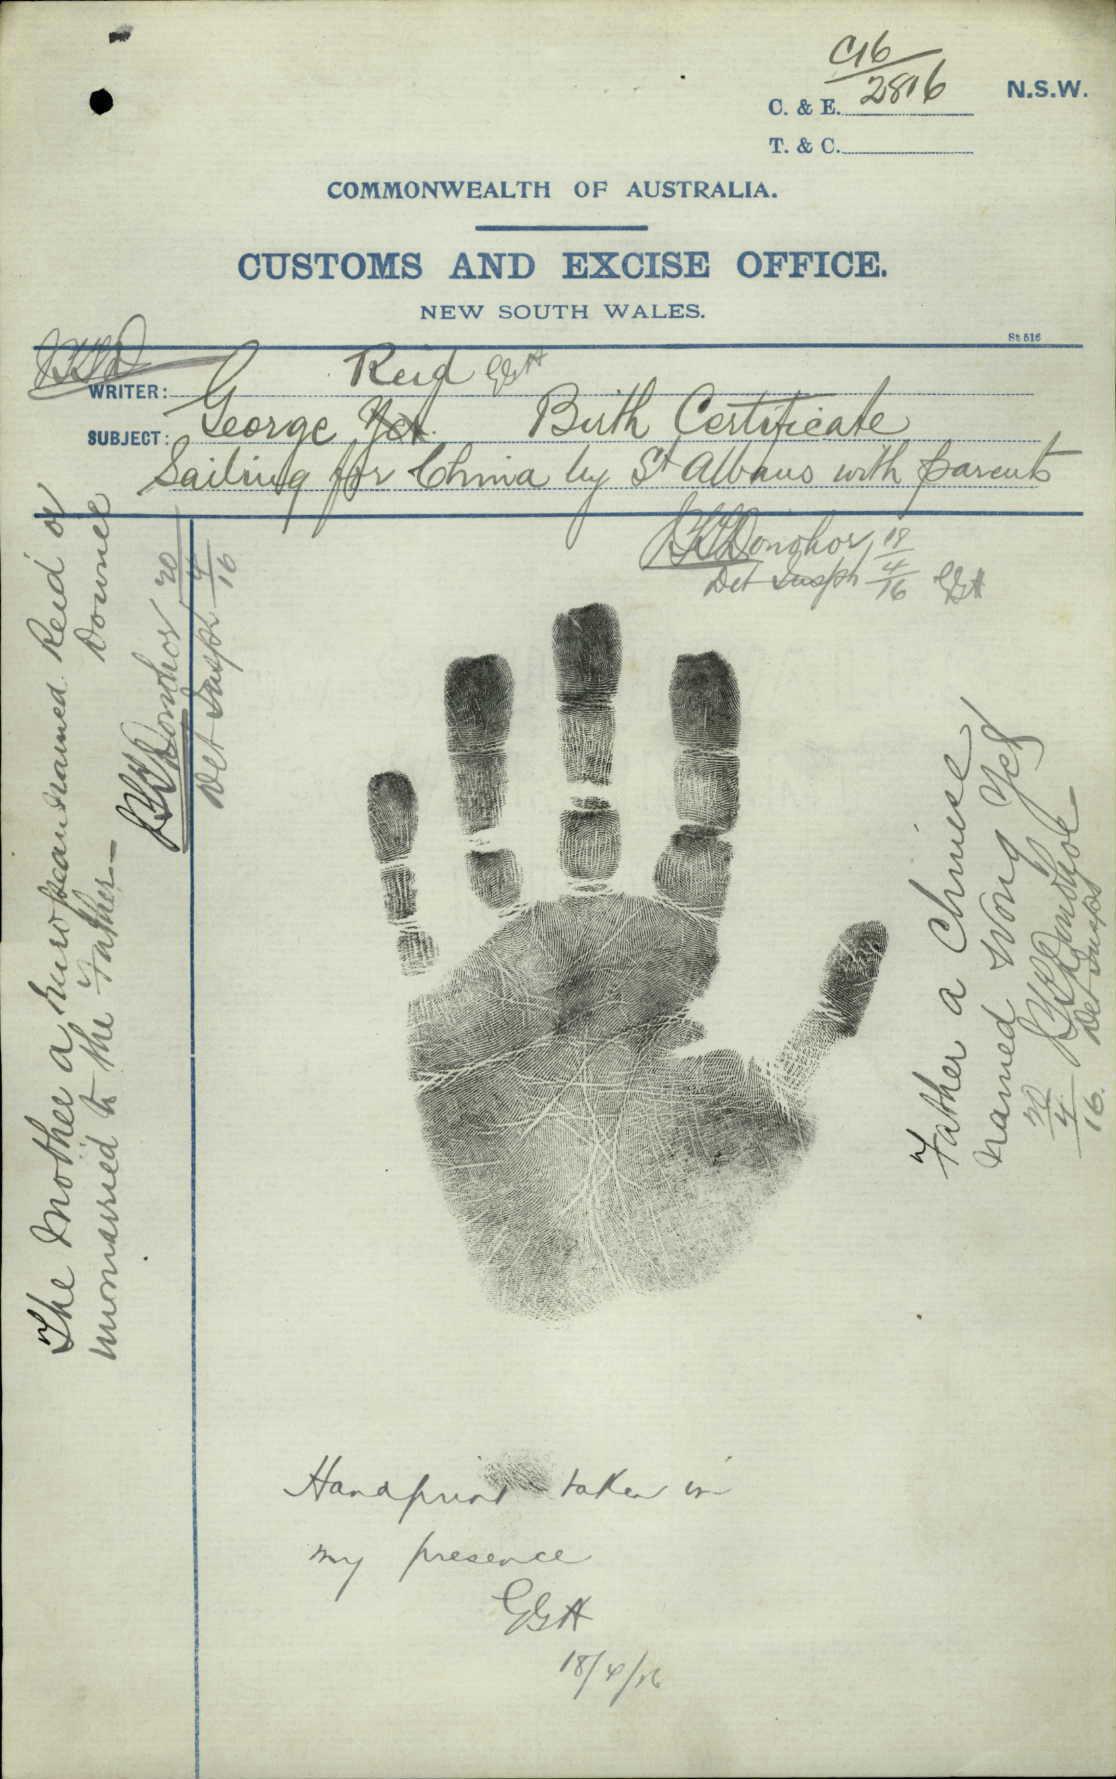 C16
2816
N.S.W.
C. & E.
T. & C.
COMMONWEALTH OF AUSTRALIA.
CUSTOMS AND EXCISE OFFICE.
NEW SOUTH WALES.
St 516
WRITER:
Reid GGH
SUBJECT: George Yet. Birth Certificate
Sailing for China by St Albans with parents
Donohoe 19/4/16
Det Inspr GGH
The Mother a European named Reid or Downie
unmarried to the Father
Donohoe 20/4/16
Det Inspr
Father a Chinese
named Wong Yet
Donohoe
Det Inspr
20/4/16.
Handprint taken in
my presence
GGH
18/4/16